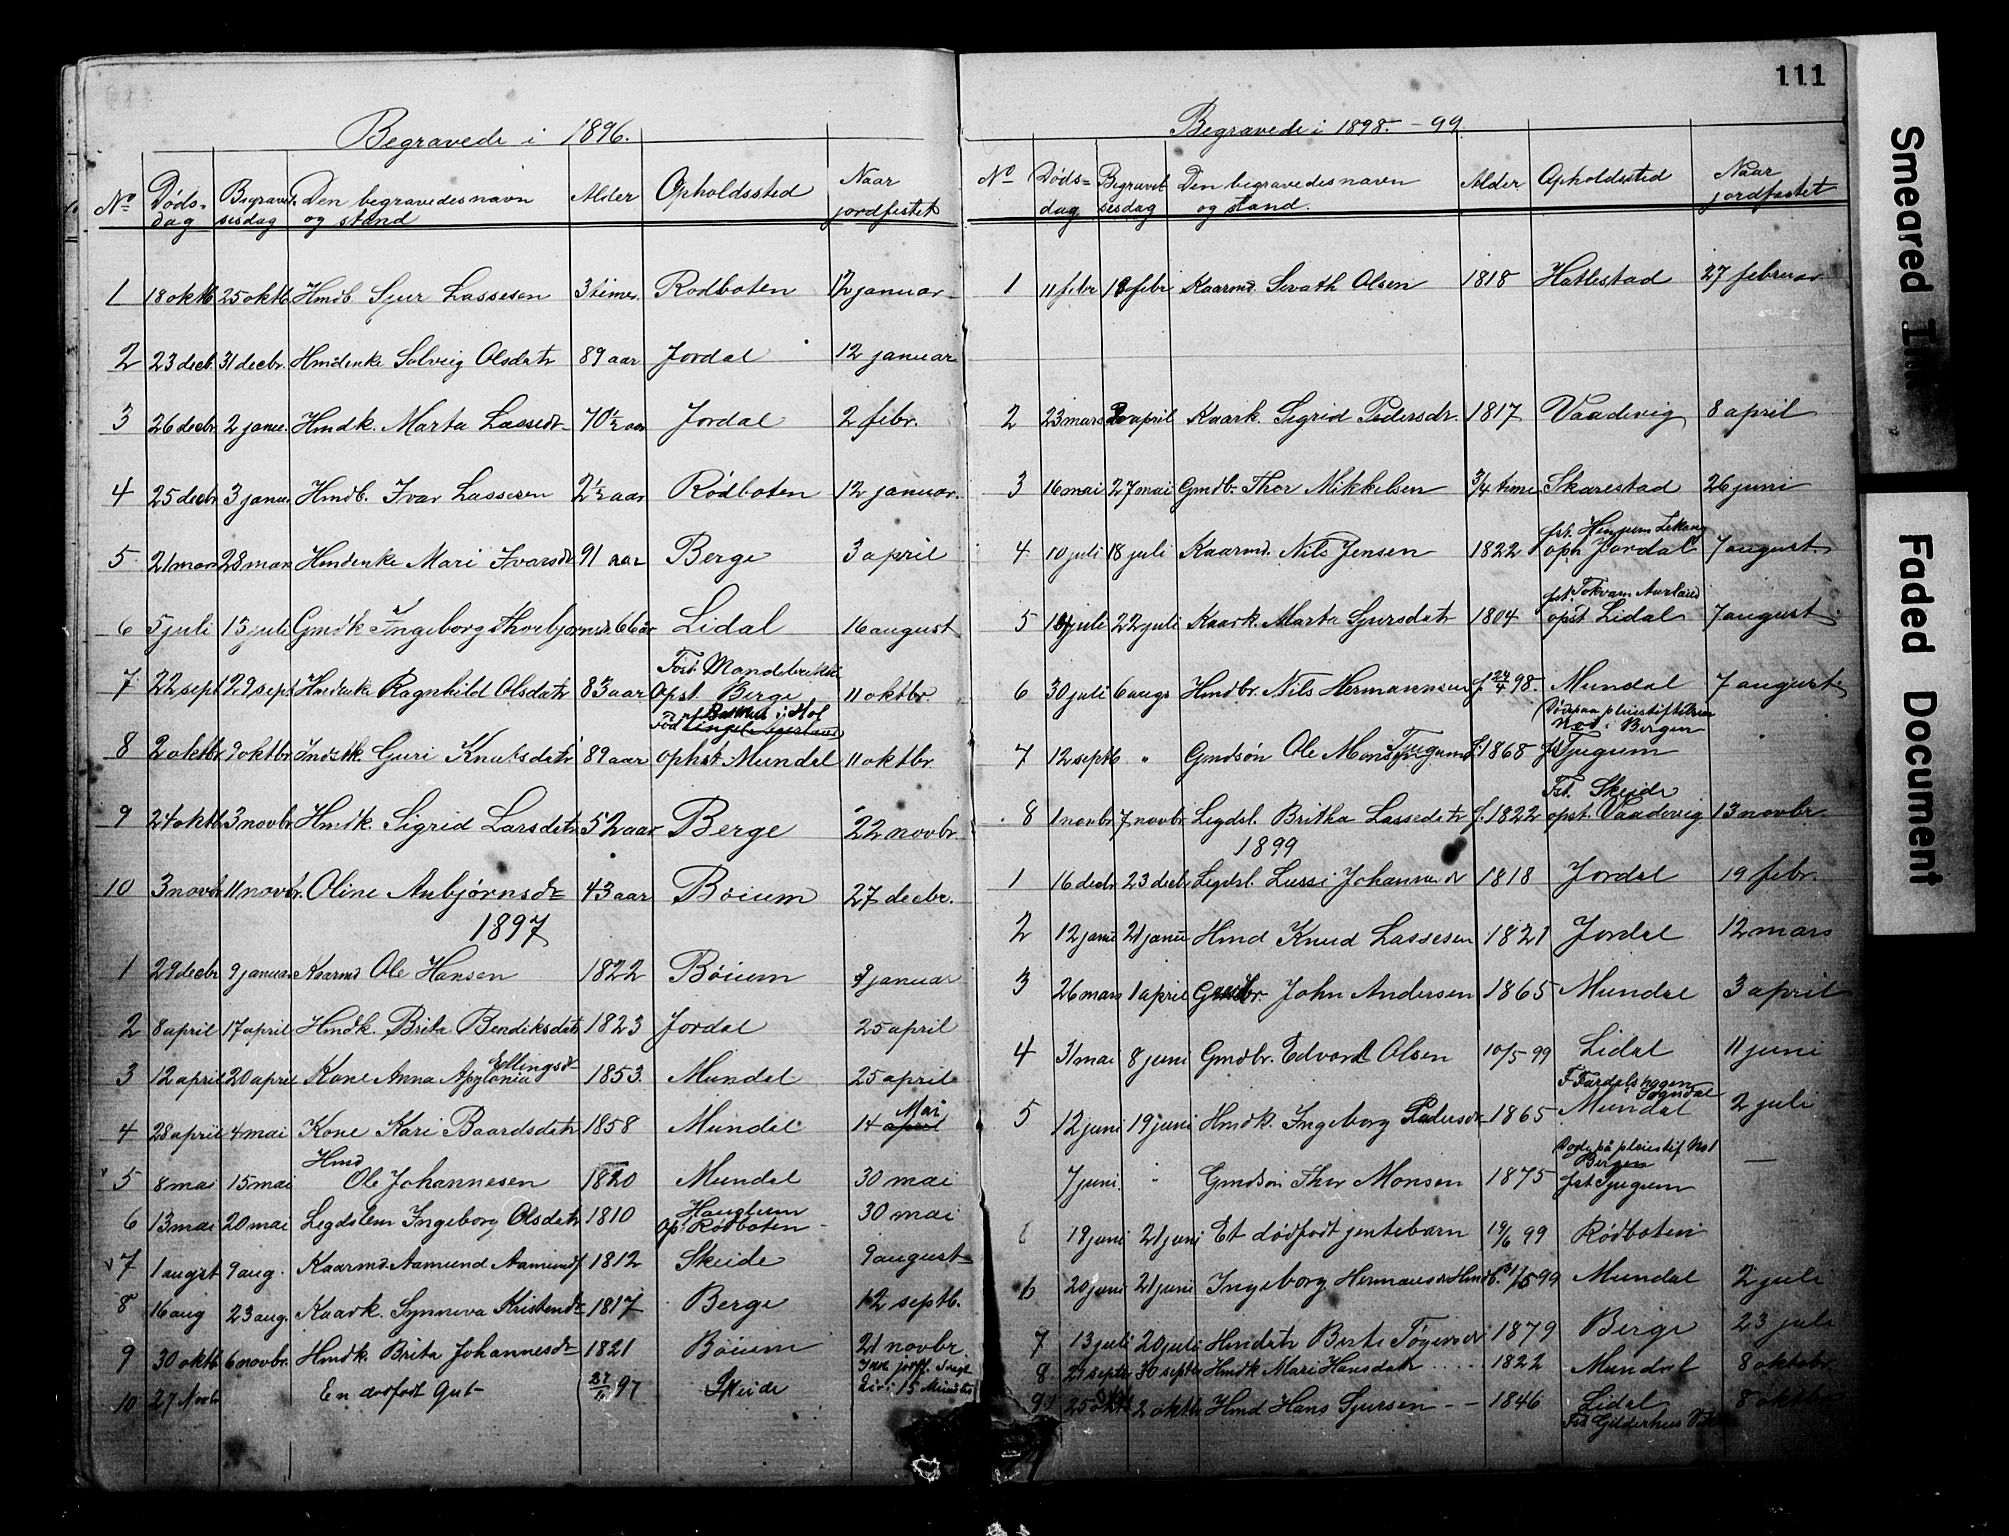 Begravede i 1896.
No Døds- dag Begravel- sesdag Den begravedes navn og stand Alder Opholdssted Naar jordfestet
1 18 oktb 25 oktb Hmdb Sjur Lassesen 3 timer Rødboten 12 januar
2 23 decb. 31 decbr. Hmdenke Solveig Olsdatr 89 aar Jordal 12 januar
3 26 decbr 2 janu. Hmdk. Marta Lassedr 70½ aar Jordal 2 febr.
4 25 decbr 3 janu. Hmdb. Ivar Lassesen 2½ aar Rødboten 12 januar.
5 21 mar 28 mar Hmdenke Mari Ivarsdr 91 aar Berge 3 april
6 5 juli 15 juli Gmdk Ingeborg Thorbjørnsdr 66 år Lidal 16 august
7 22 sept 29 sept Hmdenke Ragnhild Olsdatr 83 aar Opst. Berge 11 oktbr.
8 2 oktbr. 9 oktbr. Indstk. Guri Knutsdatr 89 aar ophst Mundal 11 oktbr.
9 24 oktb 3 novbr. Hmdk. Sigrid Larsdatr 52 aar Berge 22 novbr.
10 3 novb 11 novbr. Oline Anbjørnsdr 43 aar Bøium 27 decbr.
1897
1 29 decbr 9 januar Kaarmd Ole Hansen 1822 Bøium 9 januar
2 8 april 17 april Hmdk. Brita Bendiksdatr 1823 Jordal 25 april
3 12 april 20 april Kone Anna Apylonia Ellingsdr 1853. Mundal 25 april
4 28 april 4 mai Kone Kari Baardsdatr 1858 Mundal 14 april Mai
5 8 mai 15 mai Hmd Ole Johannesen 1820 Mundal 30 mai
6 13 mai 20 mai Legdslem Ingeborg Olsdatr 1810 Hauglum Op. Rødboten 30 mai
7 1 augst 9 aug. Kaarmd Aamund Aamunds 1812 Skeide 9 august
8 16 aug 23 aug. Kaark. Synneva Kristendr 1817 Berge 12 septb.
9 30 oktb 6 novbr. Hmdk. Brita Johannesdr 1821 Bøium 21 novbr
10 27 Novb En dødfødt Gut 27/11 97 Skeide
111
Begravede i 1898. - 99.
No Døds- dag Begravel- sesdag Den begravedes navn og stand. Alder Opholdssted Naar jordfestet
1 11 febr 18 febr Kaarmd. Sevath Olsen 1818 Hatlestad 27 februar
2 23 mars 2 april Kaark. Sigrid Pedersdr. 1817 Vaadevig 8 april
3 16 mai 27 mai Gmdb. Thor Mikkelsen 3/4 time Skarestad 26 juni
4 10 juli 18 juli Kaarmd. Nils Jensen 1822 oph Jordal 7 august
5 juli 22 juli Kaark. Marta Sjursdatr 1804 fst. Tokvam Aurland opst Lidal 7 august
6 30 juli 6 augs Hmdbr. Nils Hermannsen f 24/4 98. Mundal 7 august
7 12 septb " Gmdsøn Ole Monsen Tjugum f. 1868 Død paa pleiestiftelsen No 1. Bergen fst Tjugum
8 1 novbr. 7 novbr. Legdsl. Britha Lassedatr f. 1822 Fst. Skeide opst. Vaadevig 13 novbr.
1899
1 16 decbr 23 decb Legdsl. Lussi Johannesdr 1818 Jordal 19 febr.
2 12 janu 21 janu Hmd Knud Lassesen 1821 Jordal 12 mars
3 26 mars 1 april Gmdbr. John Andersen 1865 Mundal 3 april
4 31 mai 8 juni Gmdbr. Edvard Olsen 10/5 99 Lidal 11 juni
5 12 juni 19 juni Hmdk. Ingeborg Pedersdr 1865 F Fardalshagen Sogndal Mundal 2 juli
7 juni. " Gmdsøn Thor Monsen 1875 Døde på pleiestif No 1 Bergen fst Tjugum —
19 juni 21 juni Et dødfødt jentebarn 19/6 99 Rødboten
6 20 juni 21 juni Ingeborg Hermansdr Hmdb. 31/5 99 Mundal 2 juli
7 13 juli 20 juli Hmdatr Berte Tøgersdr 1879 Berge 23 juli
8. 21 septr 30 septr Hmdk Mari Hansdatr .... 1822 Mundal 8 oktobr
9 25 2 oktb Hmd Hans Sjursen - - 1846 Lidal 8 oktbr
Smeared Ink
Faded Document